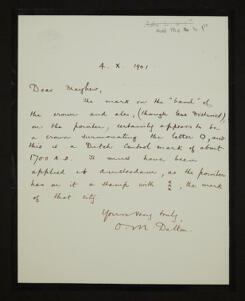 4. X. 1901
Dear Mayhew,
The mark on the "band" of
the crown and also, (though less distinct),
on the pointer, certainly appears to be
a crown surmounting the letter O, and
this is a Dutch Control mark of about
1700 A.D. It must have been
applied at as the pointer
has on it a stamp with the mark
of that city.
Yours very truly,
O. M. Dalton